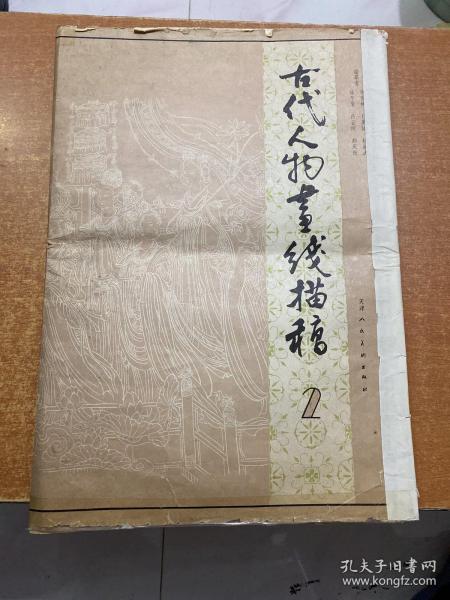 古代人物畫线描稿
2
天津人民美術出版社
孔夫子旧书网
www.kongfz.com